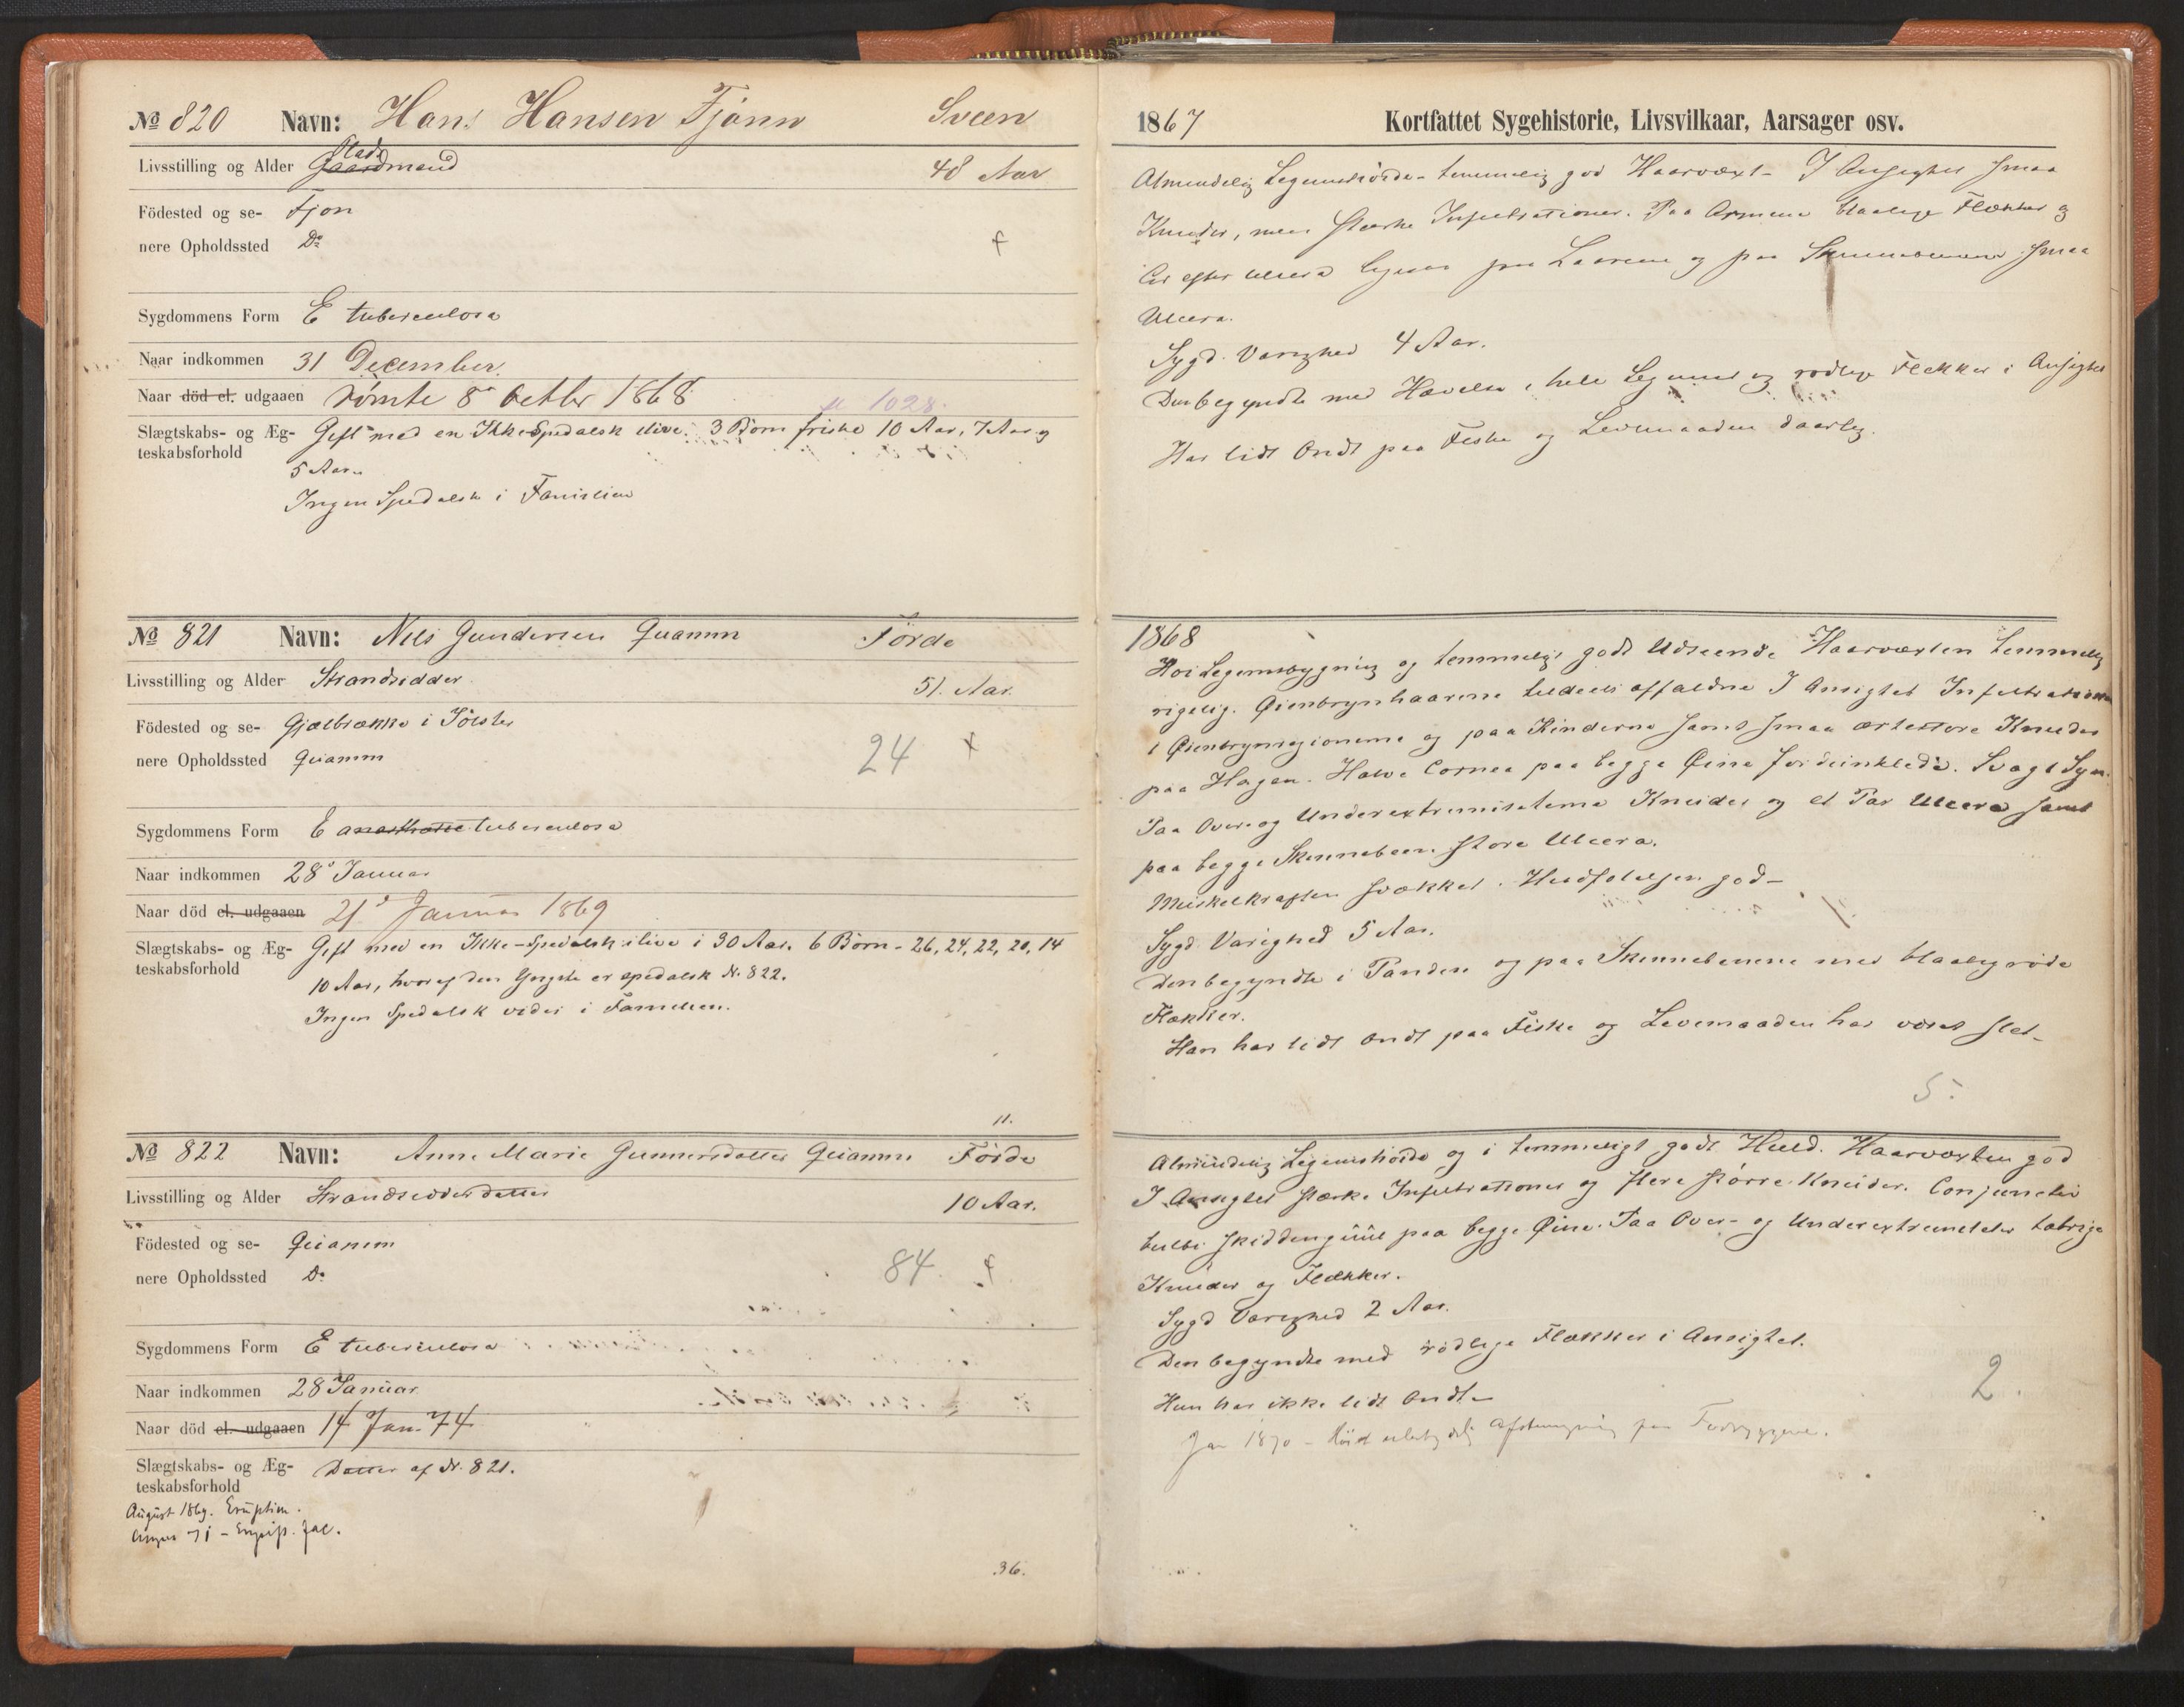 № 820 Navn: Hans Hansen Fjönn Sveen
Livsstilling og Alder Gaardmand Stads 48 Aar
Födested og se- Fjon
nere Opholdssted Do f
Sygdommens Form E tuberculosa
Naar indkommen 31 December.
Naar död el. udgaaen römte 8de Octbr 1868
1028.
Slægtskabs- og Æg- Gift med en Ikke-Spedalsk ilive. 3 Börn friske 10 Aar, 7 Aar og
teskabsforhold
5 Aar.
Ingen Spedalsk i Familien
№ 821 Navn: Nils Gundersen Quamm Förde
Livsstilling og Alder Strandsidder 51. Aar.
Födested og se- Gjælbrække i Jölster
nere Opholdssted Quamm 24 f
Sygdommens Form E anæsthetic tuberculosa
Naar indkommen 28de Januar
Naar död el. udgaaen 21de Januar 1869
Slægtskabs- og Æg- Gift med en Ikke-Spedalsk ilive i 30 Aar. 6 Börn - 26, 24, 22, 20, 14
teskabsforhold
10 Aar, hvoraf den Yngste er spedalsk N. 822.
Ingen Spedalsk vides i Familien.
11.
№ 822 Navn: Anne Marie Gunnersdatter Quamm Förde
Livsstilling og Alder Strandsidderdatter 10 Aar.
Födested og se- Quamm
nere Opholdssted Do 84. f
Sygdommens Form E tuberculosa
Naar indkommen 28 Januar
Naar död el. udgaaen 14 Jan. 74
Slægtskabs- og Æg- Datter af N. 821.
teskabsforhold
August 1869. Eruption.
71 - fac.
36.
1867 Kortfattet Sygehistorie, Livsvilkaar, Aarsager osv.
Almindelig Legemshöide - temmelig god Haarvæxt - I Ansigtet smaa
Knuder, men stærke Infiltrationer. Paa Armene blaalige Flækker og
Cic efter Ulcera ligesaa paa Laarene og paa Skinnebenene smaa
Ulcera.
Sygd. Varighed 4 Aar.
Den begyndte med Hævelse i hele Legemet og rödlige Flekker i Ansigtet
Har lidt Ondt paa Fiske og Levemaaden daarlig.
1868
Höi Legemsbygning og temmeligt godt Udseende Haarvæxten temmelig
rigelig. Öienbrynhaarene tildeels affaldne I Ansigtet Infiltrationer
i Öienbrynregionerne og paa Kinderne samt smaa ærtestore Knuder
paa Hagen. Halve Cornea paa begge Öine fordunklede. Svagt Syn.
Paa Over- og Underextremiteterne Knuder og et Par Ulcera samt
paa begge Skinnebeen store Ulcera.
Muskelkraften svækket. Hudfölelsen god -
Sygd. Varighed 5 Aar.
Den begyndte i Panden og paa Skinnebenene med blaaligröde
Flækker.
Han har lidt ondt paa Fiske og Levemaaden har været slet -
5.
Almindelig Legemshöide og i temmeligt godt Huld. Haarvæxten god
I Ansigtet stærke Infiltrationer og flere större Knuder. Conjunctiv
bulbi skiddenguul paa begge Öine. Paa Over- og Underextremiteter talrige
Knuder og Flækker.
Sygd Varighed 2 Aar.
Den begyndte med rödlige Flækker i Ansigtet.
Hun har ikke lidt Ondt - 2.
Jan 1870 - paa Fodryggene.